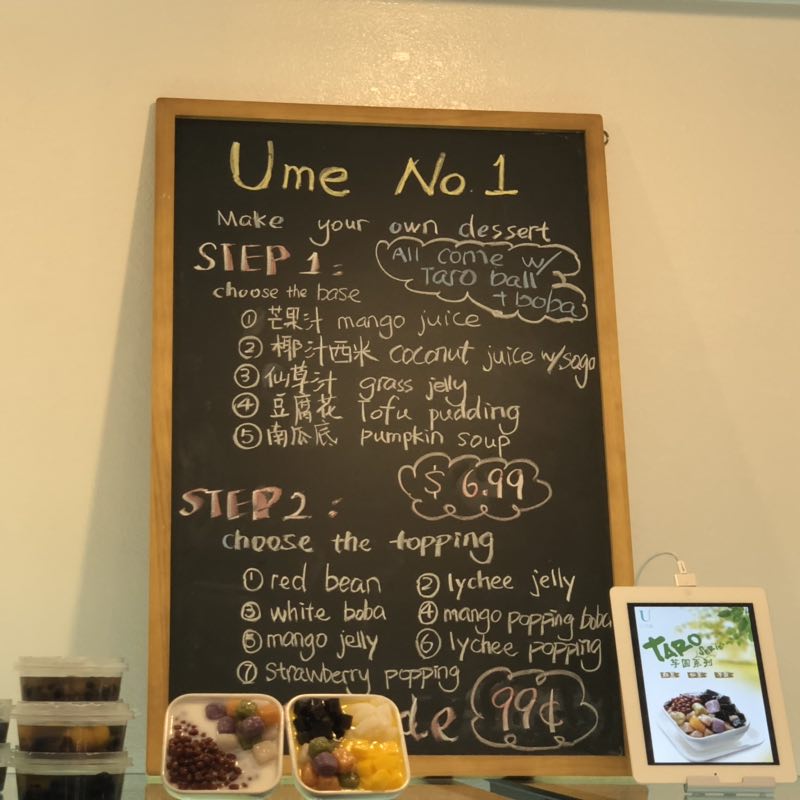 Ume No.1
Make your own dessert
STEP 1:
All come w/
Taro ball
+ boba
choose the base
① 芒果汁 mango juice
② 椰汁西米 coconut juice w/sago
③ 仙草汁 grass jelly
④ 豆腐花 Tofu pudding
⑤ 南瓜底 pumpkin soup
$ 6.99
STEP 2:
choose the topping
① red bean ② lychee jelly
③ white boba ④ mango popping boba
⑤ mango jelly ⑥ lychee popping
⑦ strawberry popping
99¢
U
TARO
芋圆系列